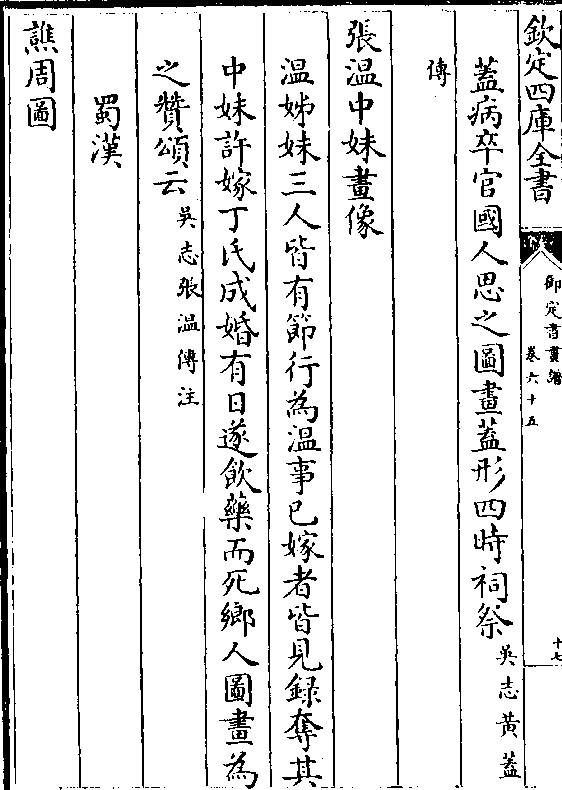 欽定四庫全書
御定書畫譜
卷六十五
十七
蓋病卒官國人思之圖畫蓋形四時祠祭吳志黃蓋
傳
張溫中妹畫像
溫姊妹三人皆有節行為溫事已嫁者皆見録奪其
中妹許嫁丁氏成婚有日遂飲藥而死鄉人圖畫為
之贊頌云吳志張溫傳注
蜀漢
譙周圖